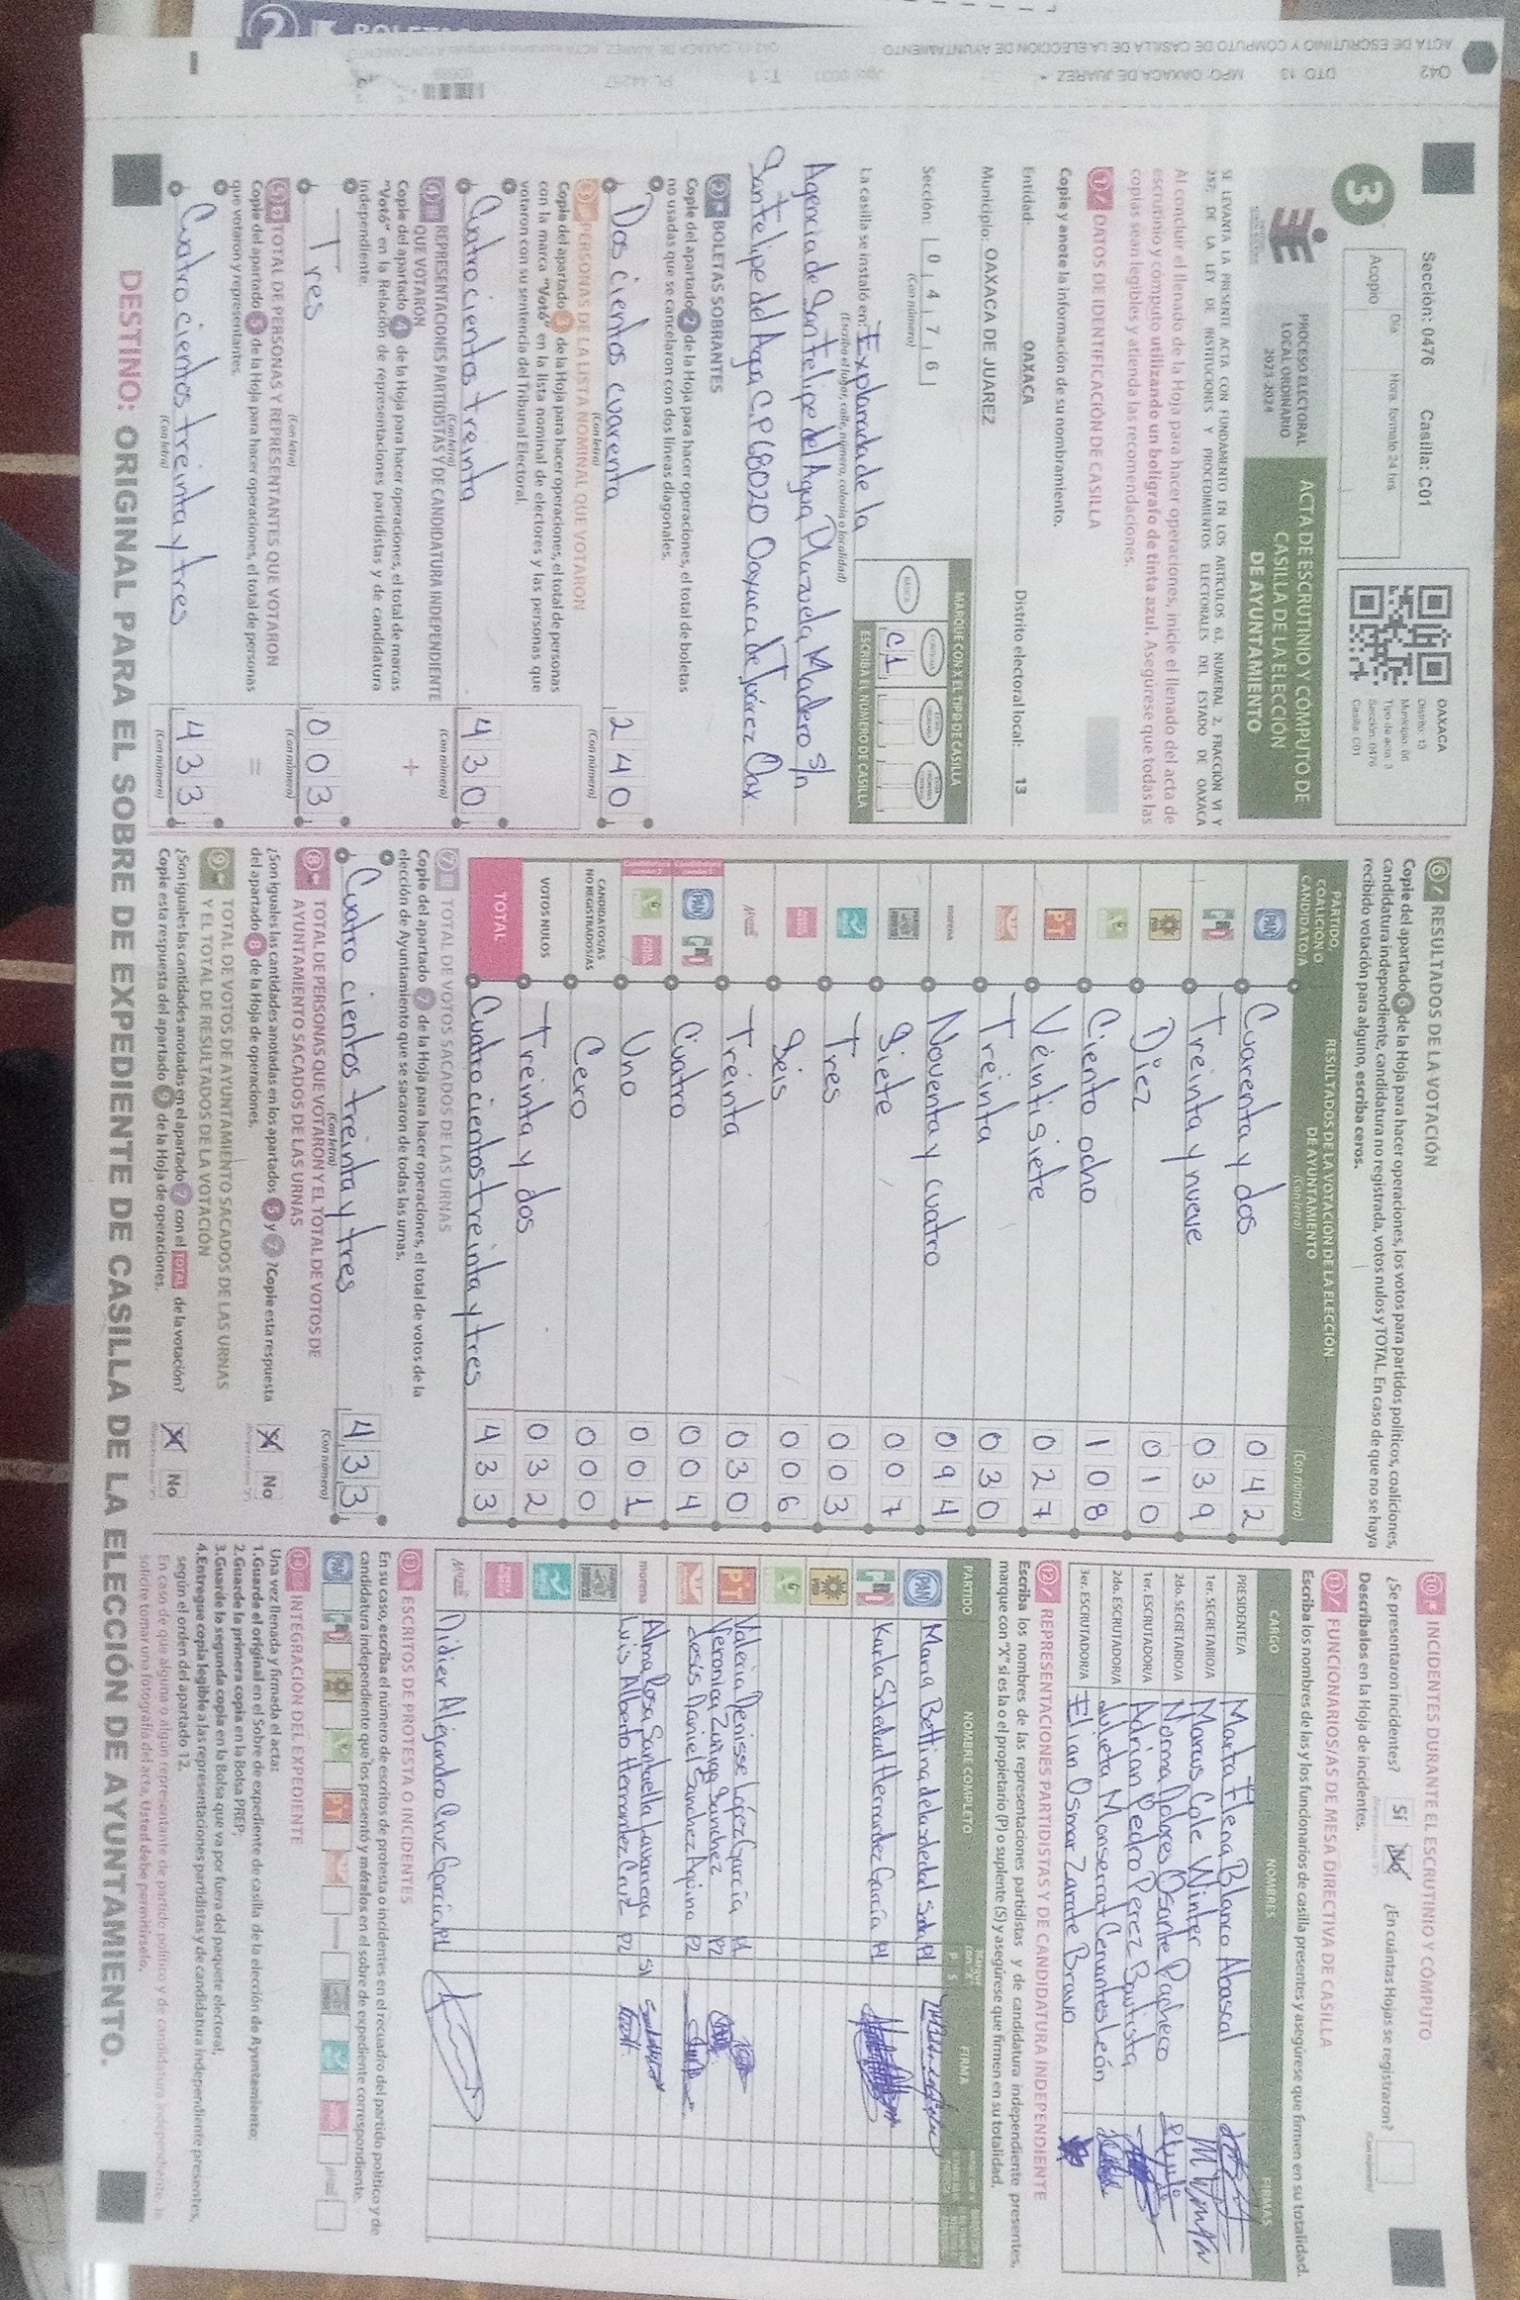 Sección: 0476 Casilla: C01
3
Día
Hora, formato 24 hrs
Acopio
OAXACA
Distrito: 13
Municipio: 06
Tipo de acta: 3
Sección: 0476
Casilla: C01
PROCESO ELECTORAL
LOCAL ORDINARIO
2023-2024
ACTA DE ESCRUTINIO Y CÓMPUTO DE
CASILLA DE LA ELECCIÓN
DE AYUNTAMIENTO
SE LEVANTA LA PRESENTE ACTA CON FUNDAMENTO EN LOS ARTÍCULOS 62, NUMERAL 2, FRACCIÓN VI Y
257; DE LA LEY DE INSTITUCIONES Y PROCEDIMIENTOS ELECTORALES DEL ESTADO DE OAXACA
Al concluir el llenado de la Hoja para hacer operaciones, inicie el llenado del acta de
escrutinio y cómputo utilizando un bolígrafo de tinta azul. Asegúrese que todas las
copias sean legibles y atienda las recomendaciones.
1 DATOS DE IDENTIFICACIÓN DE CASILLA
Copie y anote la información de su nombramiento.
Entidad: OAXACA Distrito electoral local: 13
Municipio: OAXACA DE JUAREZ
Sección: 0 4 7 6
(Con número)
MARQUE CON X EL TIPO DE CASILLA
BÁSICA
C1
ESCRIBA EL NÚMERO DE CASILLA
La casilla se instaló en: Explanada de la
(Escriba el lugar, calle, número, colonia o localidad)
Agencia de San Felipe del Agua, Plazuela Madero s/n
San Felipe del Agua C.P 68020 Oaxaca de Juárez Oax
2 BOLETAS SOBRANTES
Copie del apartado 2 de la Hoja para hacer operaciones, el total de boletas
no usadas que se cancelaron con dos líneas diagonales.
Dos cientos cuarenta 2 4 0
(Con letra) (Con número)
3 PERSONAS DE LA LISTA NOMINAL QUE VOTARON
Copie del apartado 3 de la Hoja para hacer operaciones, el total de personas
con la marca "Votó" en la lista nominal de electores y las personas que
votaron con su sentencia del Tribunal Electoral.
Cuatro cientos treinta 4 3 0
(Con letra) (Con número)
4 REPRESENTACIONES PARTIDISTAS Y DE CANDIDATURA INDEPENDIENTE
QUE VOTARON
Copie del apartado 4 de la Hoja para hacer operaciones, el total de marcas
"Votó" en la Relación de representaciones partidistas y de candidatura
independiente.
+
Tres 0 0 3
(Con letra) (Con número)
5 TOTAL DE PERSONAS Y REPRESENTANTES QUE VOTARON
Copie del apartado 5 de la Hoja para hacer operaciones, el total de personas
que votaron y representantes.
=
Cuatro cientos treinta y tres 4 3 3
(Con letra) (Con número)
6 RESULTADOS DE LA VOTACIÓN
Copie del apartado 6 de la Hoja para hacer operaciones, los votos para partidos políticos, coaliciones,
candidatura independiente, candidatura no registrada, votos nulos y TOTAL. En caso de que no se haya
recibido votación para alguno, escriba ceros.
PARTIDO,
COALICIÓN O
CANDIDATO/A
RESULTADOS DE LA VOTACIÓN DE LA ELECCIÓN
DE AYUNTAMIENTO
(Con letra) (Con número)
PAN Cuarenta y dos 0 4 2
PRI Treinta y nueve 0 3 9
Diez 0 1 0
Ciento ocho 1 0 8
PT Veintisiete 0 2 7
Treinta 0 3 0
morena Noventa y cuatro 0 9 4
Siete 0 0 7
Tres 0 0 3
Seis 0 0 6
Treinta 0 3 0
PAN PRI Cuatro 0 0 4
Uno 0 0 1
CANDIDATOS/AS
NO REGISTRADOS/AS
Cero 0 0 0
VOTOS NULOS Treinta y dos 0 3 2
TOTAL Cuatro cientos treinta y tres 4 3 3
7 TOTAL DE VOTOS SACADOS DE LAS URNAS
Copie del apartado 7 de la Hoja para hacer operaciones, el total de votos de la
elección de Ayuntamiento que se sacaron de todas las urnas.
Cuatro cientos treinta y tres 4 3 3
(Con letra) (Con número)
8 TOTAL DE PERSONAS QUE VOTARON Y EL TOTAL DE VOTOS DE
AYUNTAMIENTO SACADOS DE LAS URNAS
¿Son iguales las cantidades anotadas en los apartados 5 y 7? Copie esta respuesta
del apartado 8 de la Hoja de operaciones.
X No
9 TOTAL DE VOTOS DE AYUNTAMIENTO SACADOS DE LAS URNAS
Y EL TOTAL DE RESULTADOS DE LA VOTACIÓN
¿Son iguales las cantidades anotadas en el apartado 7 con el TOTAL de la votación?
Copie esta respuesta del apartado 9 de la Hoja de operaciones.
X No
10 INCIDENTES DURANTE EL ESCRUTINIO Y CÓMPUTO
¿Se presentaron incidentes? Sí No ¿En cuántas Hojas se registraron?
Descríbalos en la Hoja de incidentes.
11 FUNCIONARIOS/AS DE MESA DIRECTIVA DE CASILLA
Escriba los nombres de las y los funcionarios de casilla presentes y asegúrese que firmen en su totalidad.
CARGO NOMBRES FIRMAS
PRESIDENTE/A Marta Elena Blanco Abascal
1er. SECRETARIO/A Marcus Cole Winter
2do. SECRETARIO/A Norma Dolores Osante Pacheco
1er. ESCRUTADOR/A Adrian Pedro Perez Bautista
2do. ESCRUTADOR/A Julieta Monserrat Cervantes León
3er. ESCRUTADOR/A Elian Osmar Zarate Bravo
12 REPRESENTACIONES PARTIDISTAS Y DE CANDIDATURA INDEPENDIENTE
Escriba los nombres de las representaciones partidistas y de candidatura independiente presentes,
marque con "X" si es la o el propietario (P) o suplente (S) y asegúrese que firmen en su totalidad.
PARTIDO NOMBRE COMPLETO P S FIRMA
PAN Maria Bettina de la soledad P1
PRI Karla Soledad Hernandez García P1
PT Valeria Denisse López García P1
Veronica Zuñiga Sanchez P2
Jesús Daniel Sanchez Aquino P2
morena Alma Rosa Santaella Lavariega S1
Luis Alberto Hernandez Cruz P2
Didier Alejandro Cruz García P1
13 ESCRITOS DE PROTESTA O INCIDENTES
En su caso, escriba el número de escritos de protesta o incidentes en el recuadro del partido político y de
candidatura independiente que los presentó y métalos en el sobre de expediente correspondiente.
14 INTEGRACIÓN DEL EXPEDIENTE
Una vez llenada y firmada el acta:
1.Guarde el original en el Sobre de expediente de casilla de la elección de Ayuntamiento;
2.Guarde la primera copia en la Bolsa PREP;
3.Guarde la segunda copia en la Bolsa que va por fuera del paquete electoral,
4.Entregue copia legible a las representaciones partidistas y de candidatura independiente presentes,
según el orden del apartado 12.
En caso de que alguna o algún representante de partido político y de candidatura independiente, le
solicite tomar una fotografía del acta, Usted debe permitírselo.
DESTINO: ORIGINAL PARA EL SOBRE DE EXPEDIENTE DE CASILLA DE LA ELECCIÓN DE AYUNTAMIENTO.
ACTA DE ESCRUTINIO Y CÓMPUTO DE CASILLA DE LA ELECCIÓN DE AYUNTAMIENTO
Q42 DTO 13 MPO: OAXACA DE JUAREZ